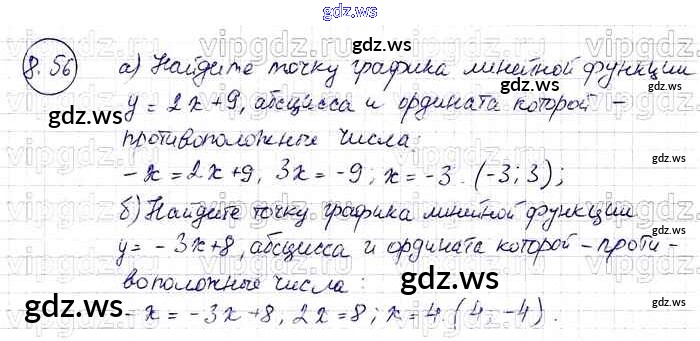 gdz.ws
8.56
а) Найдите точку графика линейной функции
y = 2x+9, абсцисса и ордината которой –
противоположные числа:
-x = 2x+9, 3x = -9; x = -3. (-3; 3);
б) Найдите точку графика линейной функции
y = -3x+8, абсцисса и ордината которой – проти-
воположные числа:
-x = -3x+8, 2x = 8; x = 4. (4; -4).
vipgdz.ws
gdz.ws
gdz.ws
gdz.ws
gdz.ws
gdz.ws
gdz.ws
gdz.ws
gdz.ws
gdz.ws